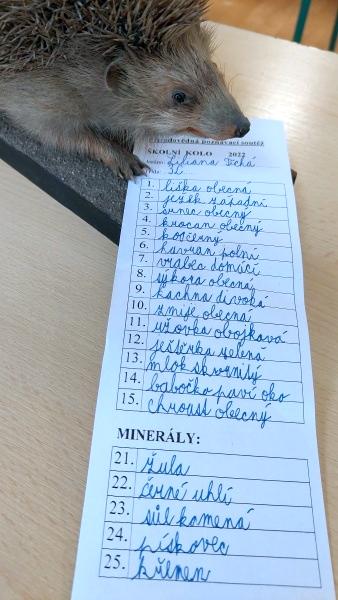 Přírodovědná poznávací soutěž
ŠKOLNÍ KOLO 2022
Liliana Tichá
1. liška obecná
2. ježek západní
3. srnec obecný
4. krocan obecný
5. kos černý
6. havran polní
7. vrabec domácí
8. sýkora obecná
9. kachna divoká
10. zmije obecná
11. užovka obojková
12. ještěrka zelená
13. mlok skvrnitý
14. babočka paví oko
15. chroust obecný
MINERÁLY:
21. žula
22. černé uhlí
23. sůl kamená
24. pískovec
25. křemen